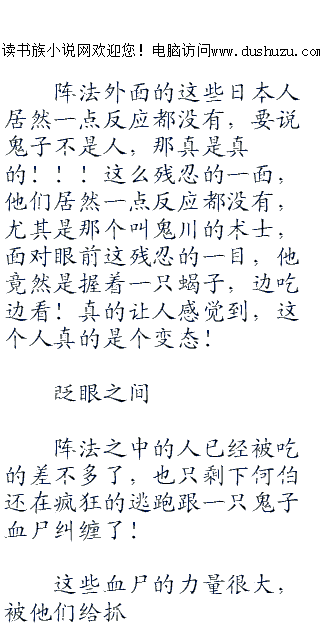 读书族小说网欢迎您！电脑访问www.dushuzu.com
阵法外面的这些日本人
居然一点反应都没有，要说
鬼子不是人，那真是真
的！！！这么残忍的一面，
他们居然一点反应都没有，
尤其是那个叫鬼川的木士，
面对眼前这残忍的一目，他
竟然是握着一只蝎子，边吃
边看！真的让人感觉到，这
个人真的是个变态！
眨眼之间
阵法之中的人已经被吃
的差不多了，也只剩下何伯
还在疯狂的逃跑跟一只鬼子
血尸纠缠了！
这些血尸的力量很大，
被他们给抓